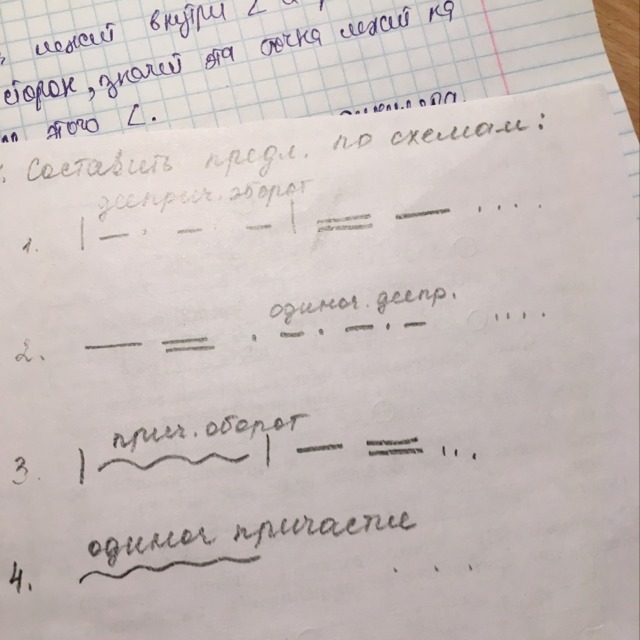 лежит внутри ∠
сторон, значит эта точка лежит на
этого ∠.
Составить предл. по схемам:
дееприч. оборот
1. | — · — · — | ═ — ....
одиноч. деепр.
2. — ═ . — · — · — ....
прич. оборот
3. | ~~~ | — ═ ...
одиноч причастие
4. ~~~ ...